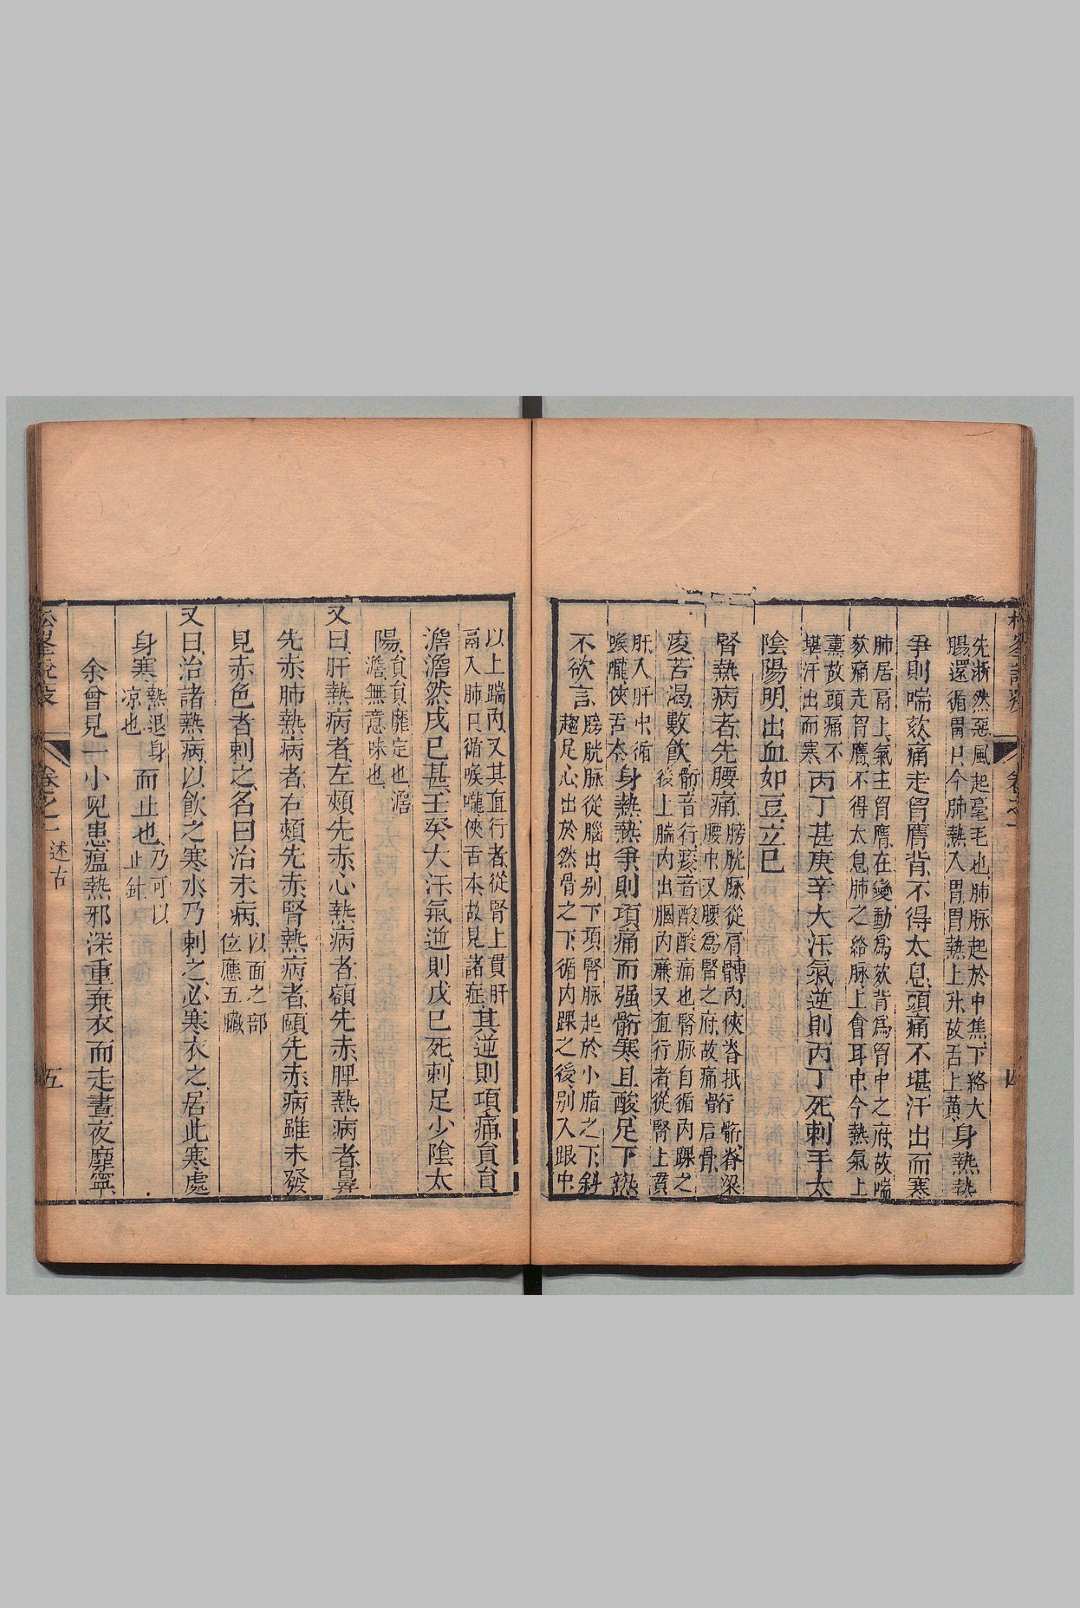 松峯說疫 卷之一 四
先淅然惡風起毫毛也肺脉起於中焦下絡大
腸還循胃口今肺熱入胃胃熱上升故舌上黃
身熱熱
爭則喘欬痛走胷膺背不得太息頭痛不堪汗出而寒
肺居鬲上氣主胷膺在變動為欬背為胷中之府故喘
欬痛走胷膺不得太息肺之絡脉上會耳中今熱氣上
薰故頭痛不
堪汗出而寒
丙丁甚庚辛大汗氣逆則丙丁死刺手太
陰陽明出血如豆立已
腎熱病者先腰痛䯒
膀胱脉從肩髆內俠脊抵
腰中又腰為腎之府故痛
痠苦渴數飲
䯒音行痠音酸酸痛也腎脉自循內踝之
後上腨內出膕內廉又直行者從腎上貫
肝入肝中循
喉嚨俠舌本
身熱熱爭則項痛而强䯒寒且酸足下熱
不欲言
膀胱脉從腦出別下項腎脉起於小指之下斜
趨足心出於然骨之下循內踝之後別入跟中
以上踹內又其直行者從腎上貫肝
鬲入肺口循喉嚨俠舌本故見諸症
其逆則項痛員員
澹澹然戊己甚壬癸大汗氣逆則戊己死刺足少陰太
陽
員員靡定也澹
澹無意味也
又曰肝熱病者左頰先赤心熱病者額先赤脾熱病者鼻
先赤肺熱病者右頰先赤腎熱病者頤先赤病雖未發
見赤色者刺之名曰治未病
以面之部
位應五臟
又曰治諸熱病以飲之寒水乃刺之必寒衣之居此寒處
身寒
熱退身
凉也
而止也
乃可以
止針
余曾見一小兒患瘟熱邪深重棄衣而走晝夜靡寧
松峯說疫 卷之一 述古 五